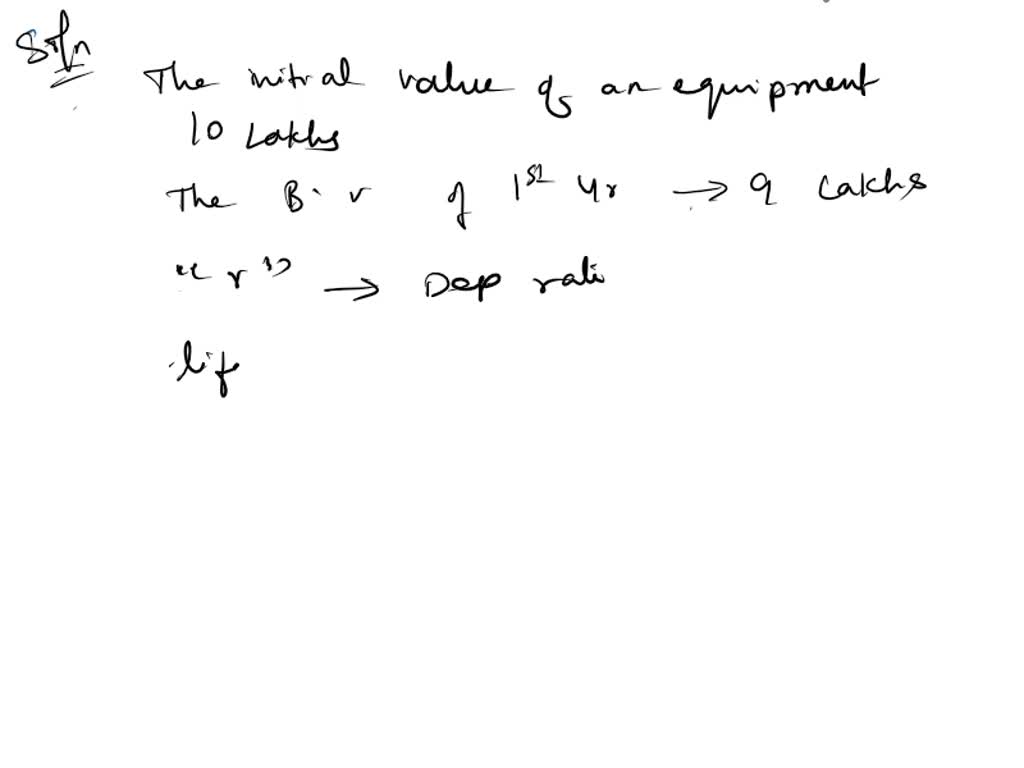 Soln
The initial value of an equipment
10 Lakhs
The B.v of 1st yr → 9 Lakhs
"r" → Dep ratio
life